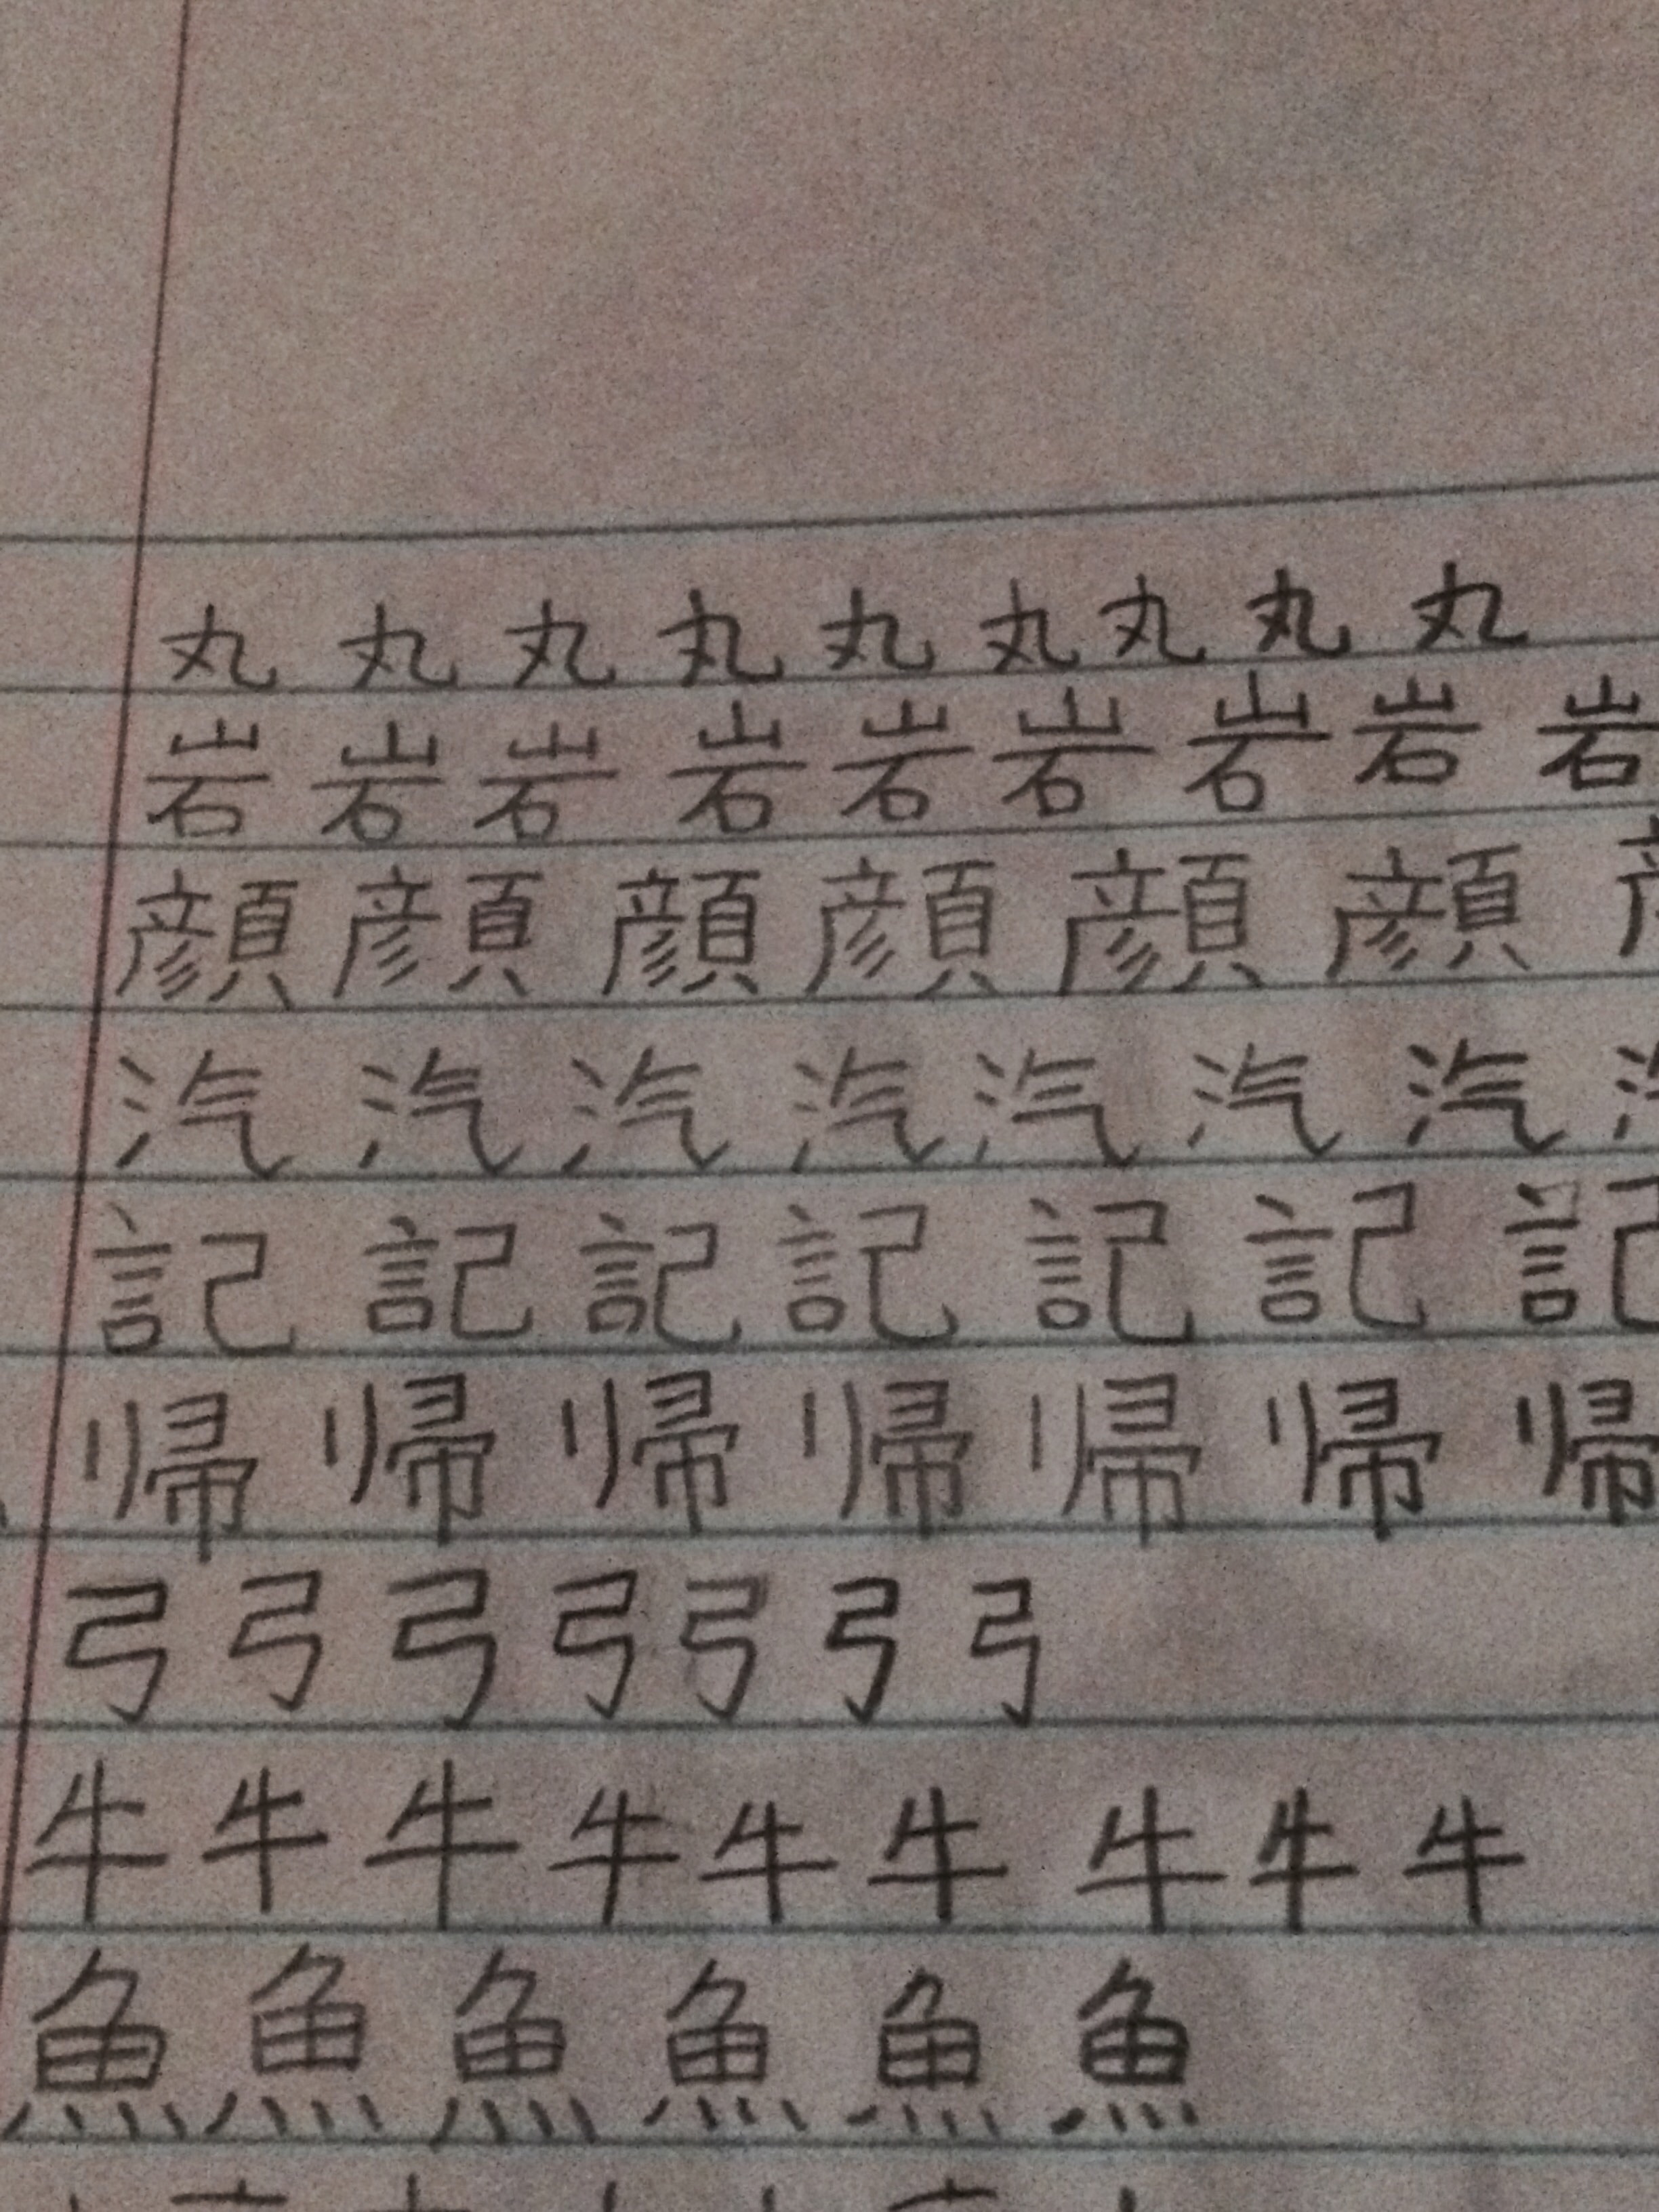 丸 丸 丸 丸 丸 丸 丸 丸 丸
岩 岩 岩 岩 岩 岩 岩 岩 岩
顔 顔 顔 顔 顔 顔
汽 汽 汽 汽 汽 汽 汽
記 記 記 記 記 記 記
帰 帰 帰 帰 帰 帰 帰
弓 弓 弓 弓 弓 弓 弓
牛 牛 牛 牛 牛 牛 牛 牛 牛
魚 魚 魚 魚 魚 魚